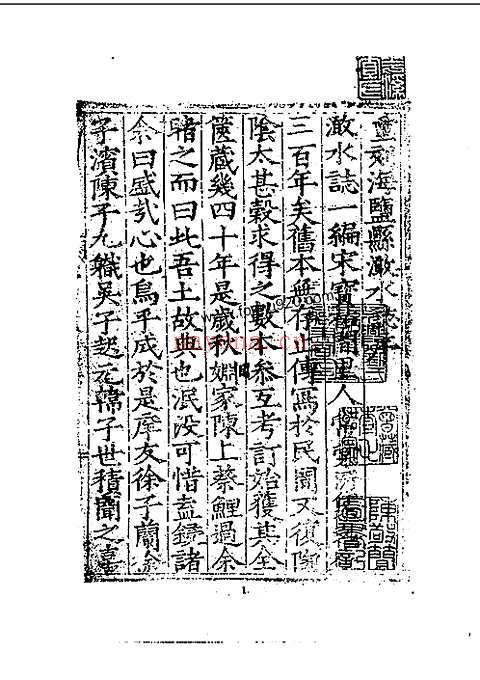 重刻海鹽縣澉水志序
澉水誌一編宋寶祐間里人常棠
三百年矣舊本無存傳寫於民間又復陶
陰太甚榖求得之數本叅互考訂始獲其全
篋藏幾四十年是歲秋婣家陳上蔡鯉過余
睹之而曰此吾土故典也泯没可惜盍鋟諸
余曰盛㢤心也烏乎成於是庠友徐子蘭
子濱陳子九職吳子起元韓子世積聞之
1